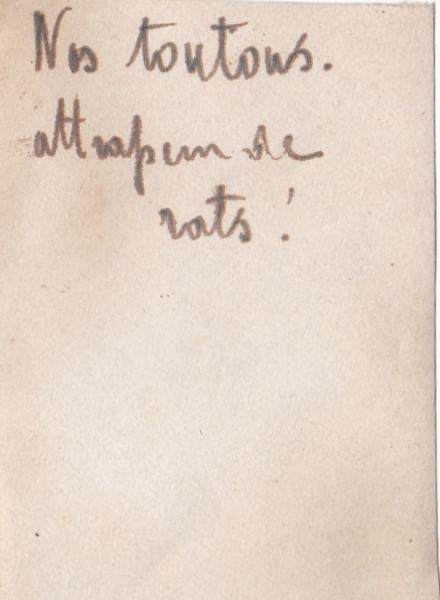 Nos toutous.
attrapeur de
rats !